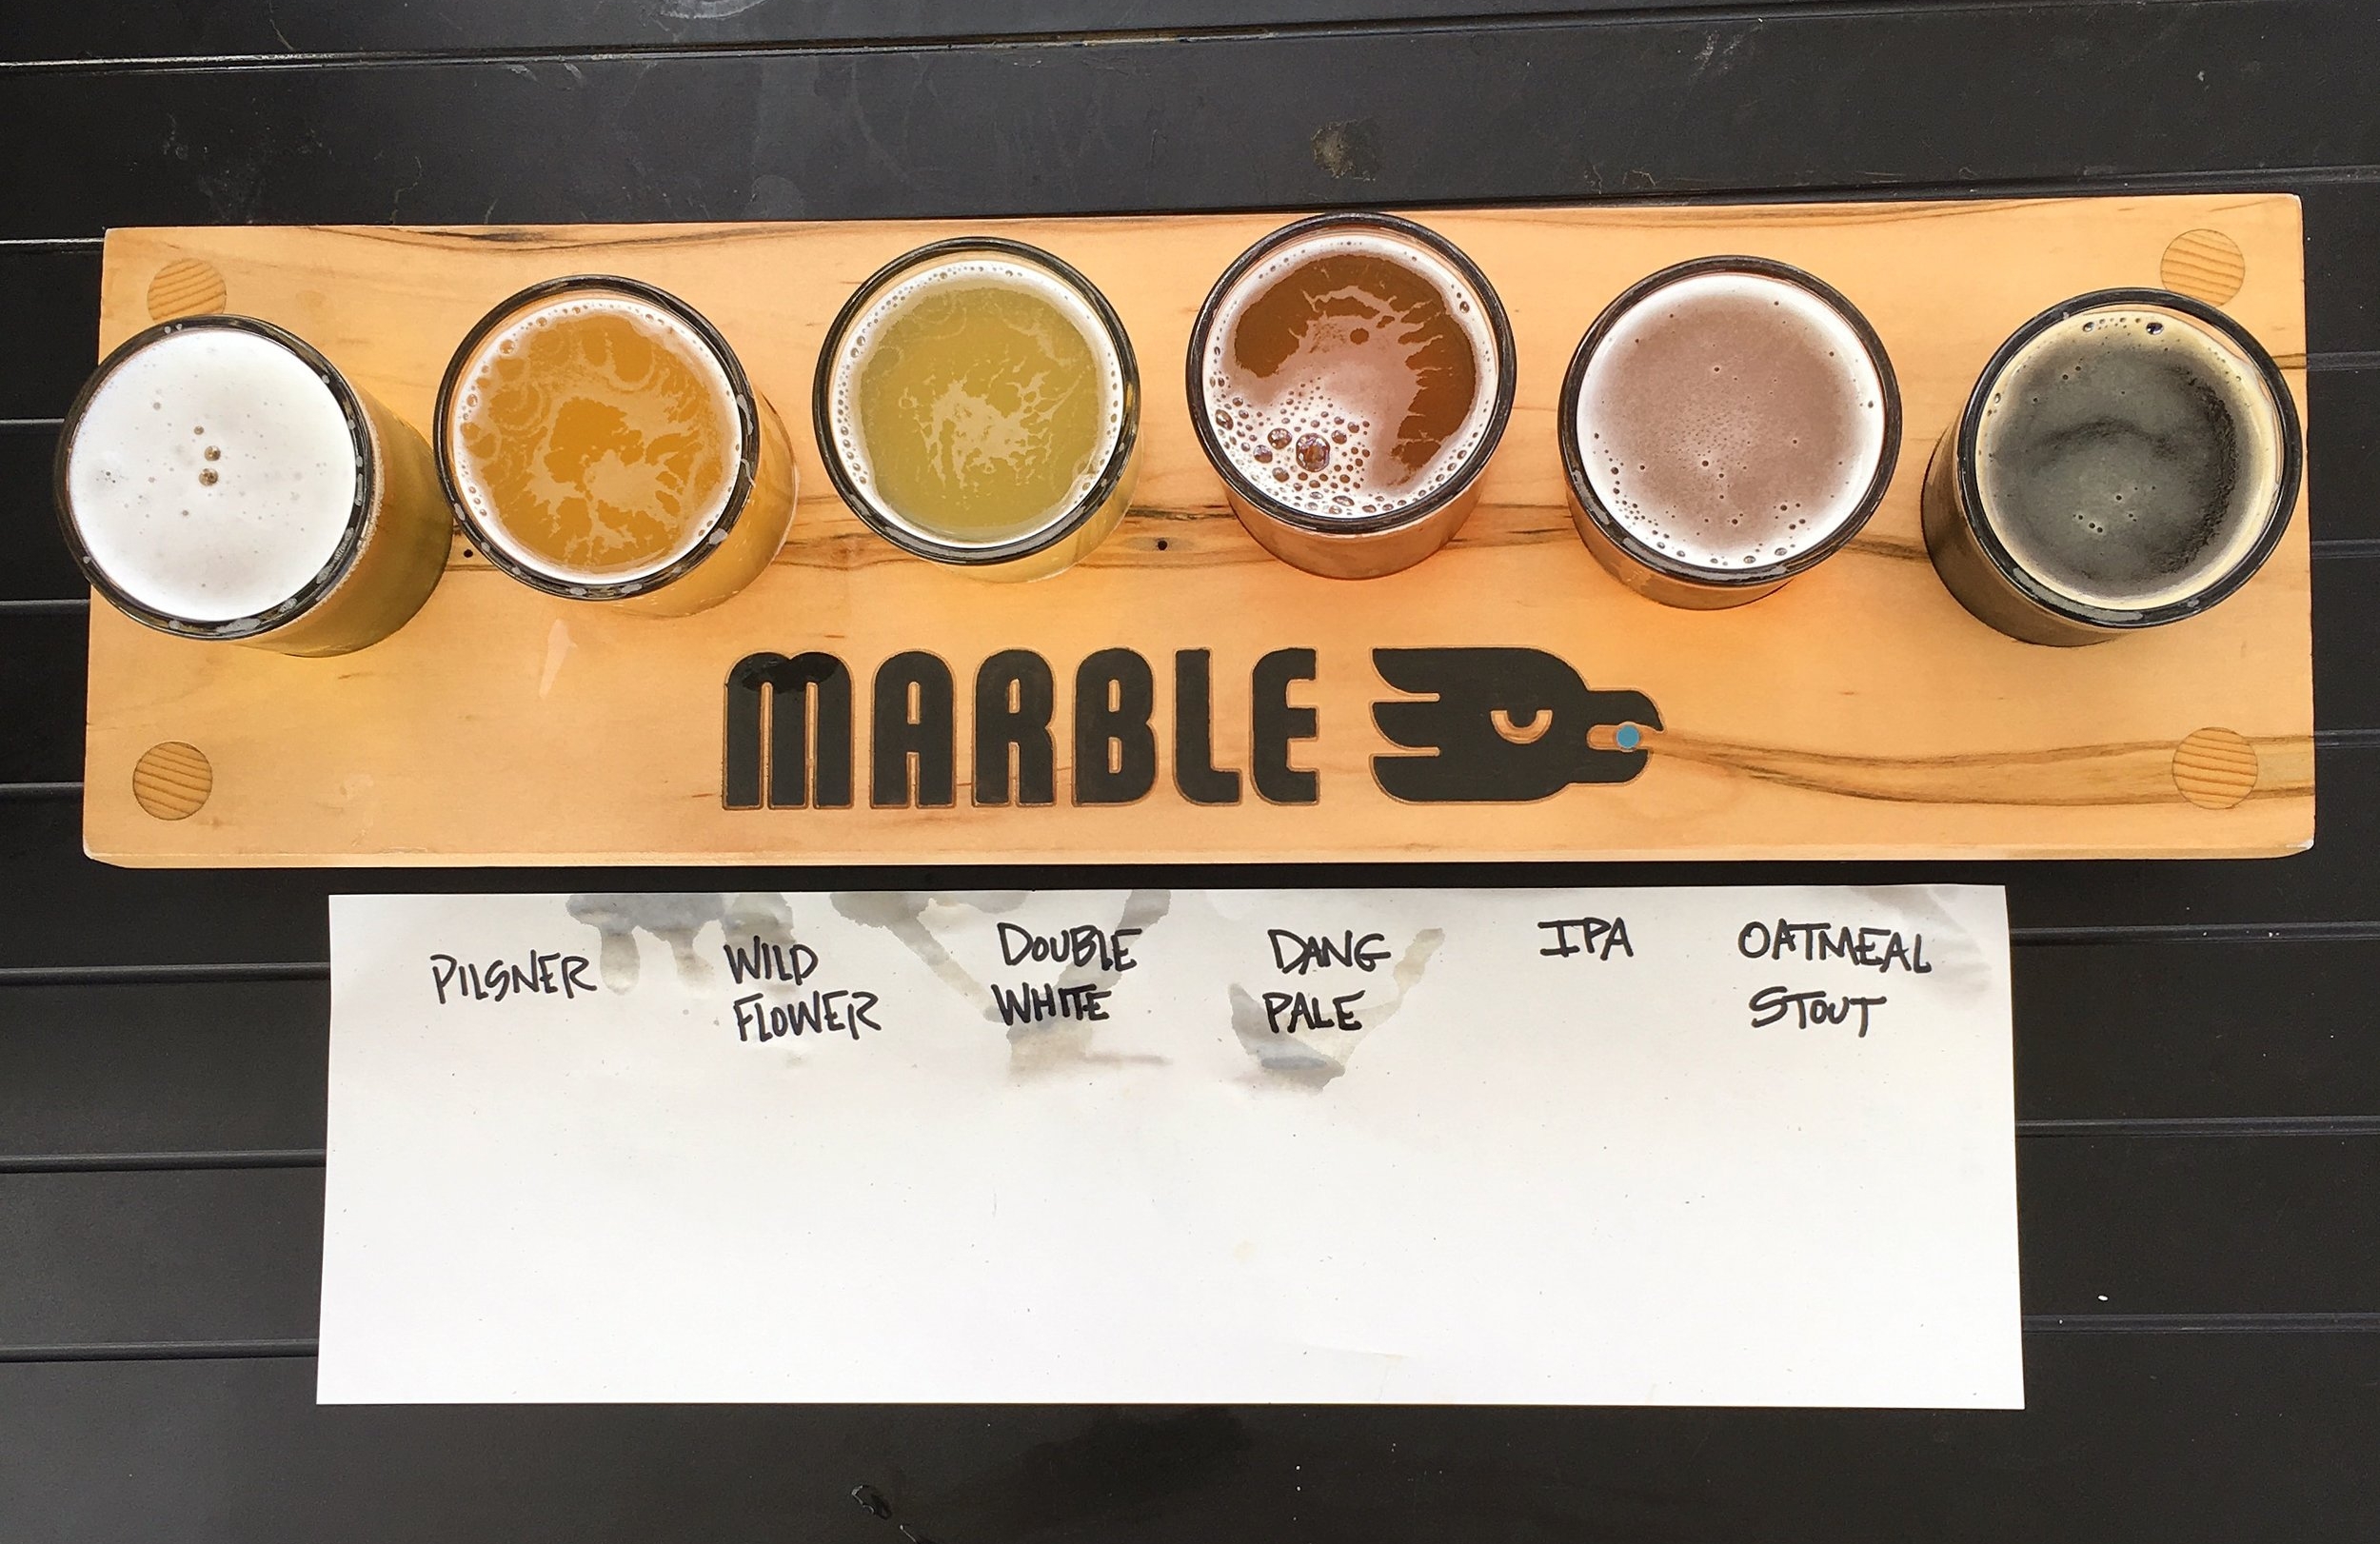 MARBLE
PILSNER
WILD
FLOWER
DOUBLE
WHITE
DANG
PALE
IPA
OATMEAL
STOUT